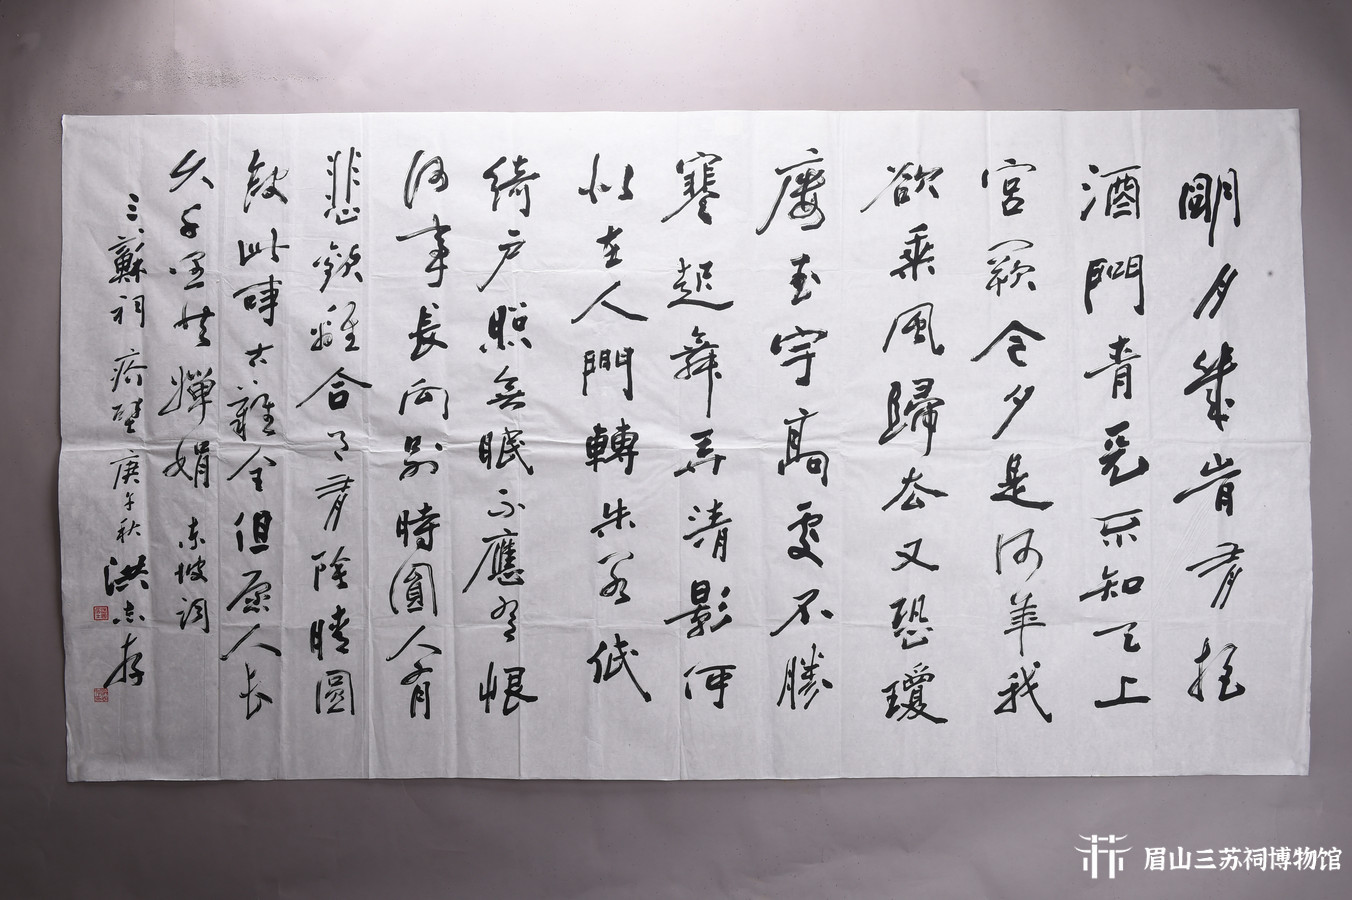 明月幾旹有把
酒問青天不知天上
宮闕今夕是何年我
欲乘風歸去又恐瓊
樓玉宇高處不勝
寒起舞弄清影何
似在人間轉朱閣低
綺戶照無眠不應有恨
何事長向別時圓人有
悲歡離合月有陰晴圓
缺此事古難全但願人長
久千里共嬋娟 東坡詞
三蘇祠疥壁 庚午秋 洪志存
眉山三苏祠博物馆